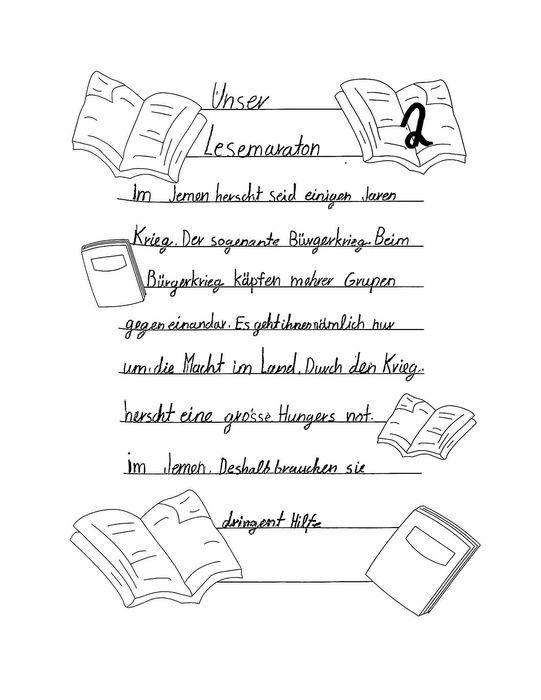 Unser
2
Lesemaraton
Im Jemen herscht seid einigen Jaren
Krieg. Der sogenante Bürgerkrieg. Beim
Bürgerkrieg käpfen mahrer Grupen
gegen einandar. Es geht ihnen nämlich nur
um die Macht im Land. Durch den Krieg.
herscht eine grosse Hungers not.
im Jemen. Deshalb brauchen sie
dringent Hilfe